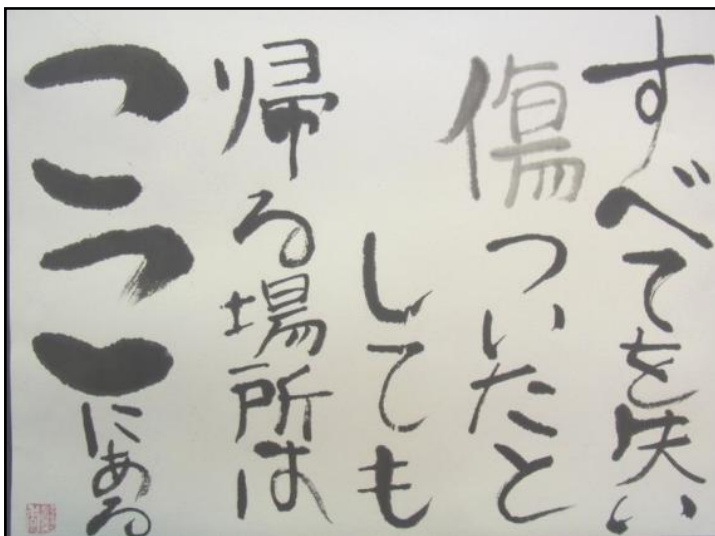 すべてを失い
傷ついたと
しても
帰る場所は
ここにある